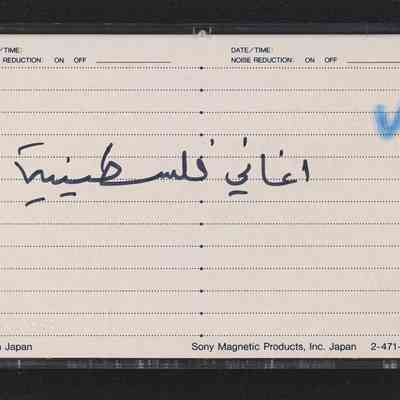 /TIME: DATE/TIME:
REDUCTION: ON OFF NOISE REDUCTION: ON OFF
اغاني فلسطينية
Japan Sony Magnetic Products, Inc. Japan 2-471-